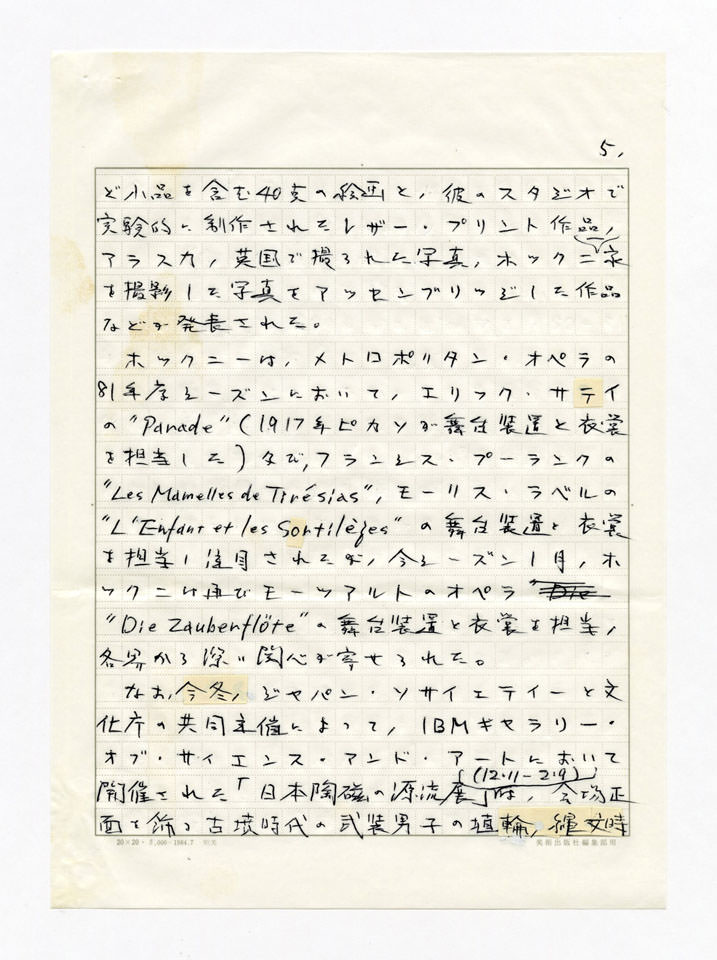 5.
ど小品を含む40支の絵画と，彼のスタジオで
実験的に制作されたレザー・プリント作品，
アラスカ，英国で撮られた写真，ホックニ家
を撮影した写真をアッセンブリッジした作品
などが発表された。
ホックニーは，メトロポリタン・オペラの
81年序シーズンにおいて，エリック・サテイ
の"Parade"(1917年ピカソが舞台装置と衣裳
を担当した)及び，フランシス・プーランクの
"Les Mamelles de Tirésias"，モーリス・ラベルの
"L'Enfant et les Sortilèges"の舞台装置と衣裳
を担当し注目されたが，今シーズン1月，ホ
ックニは再びモーツアルトのオペラ"Die
"Die Zauberflöte"の舞台装置と衣裳を担当，
各界から深い関心が寄せられた。
なお，今冬，ジャパン・ソサイエティーと文
化庁の共同主催によって，IBMギャラリー・
オブ・サイエンス・アンド・アートにおいて
(12.11-2.9)
開催された「日本陶磁の源流展」は，会場正
面を飾る古墳時代の武装男子の埴輪，縄文時
20×20・5,000-1984.7
美術出版社編集部用